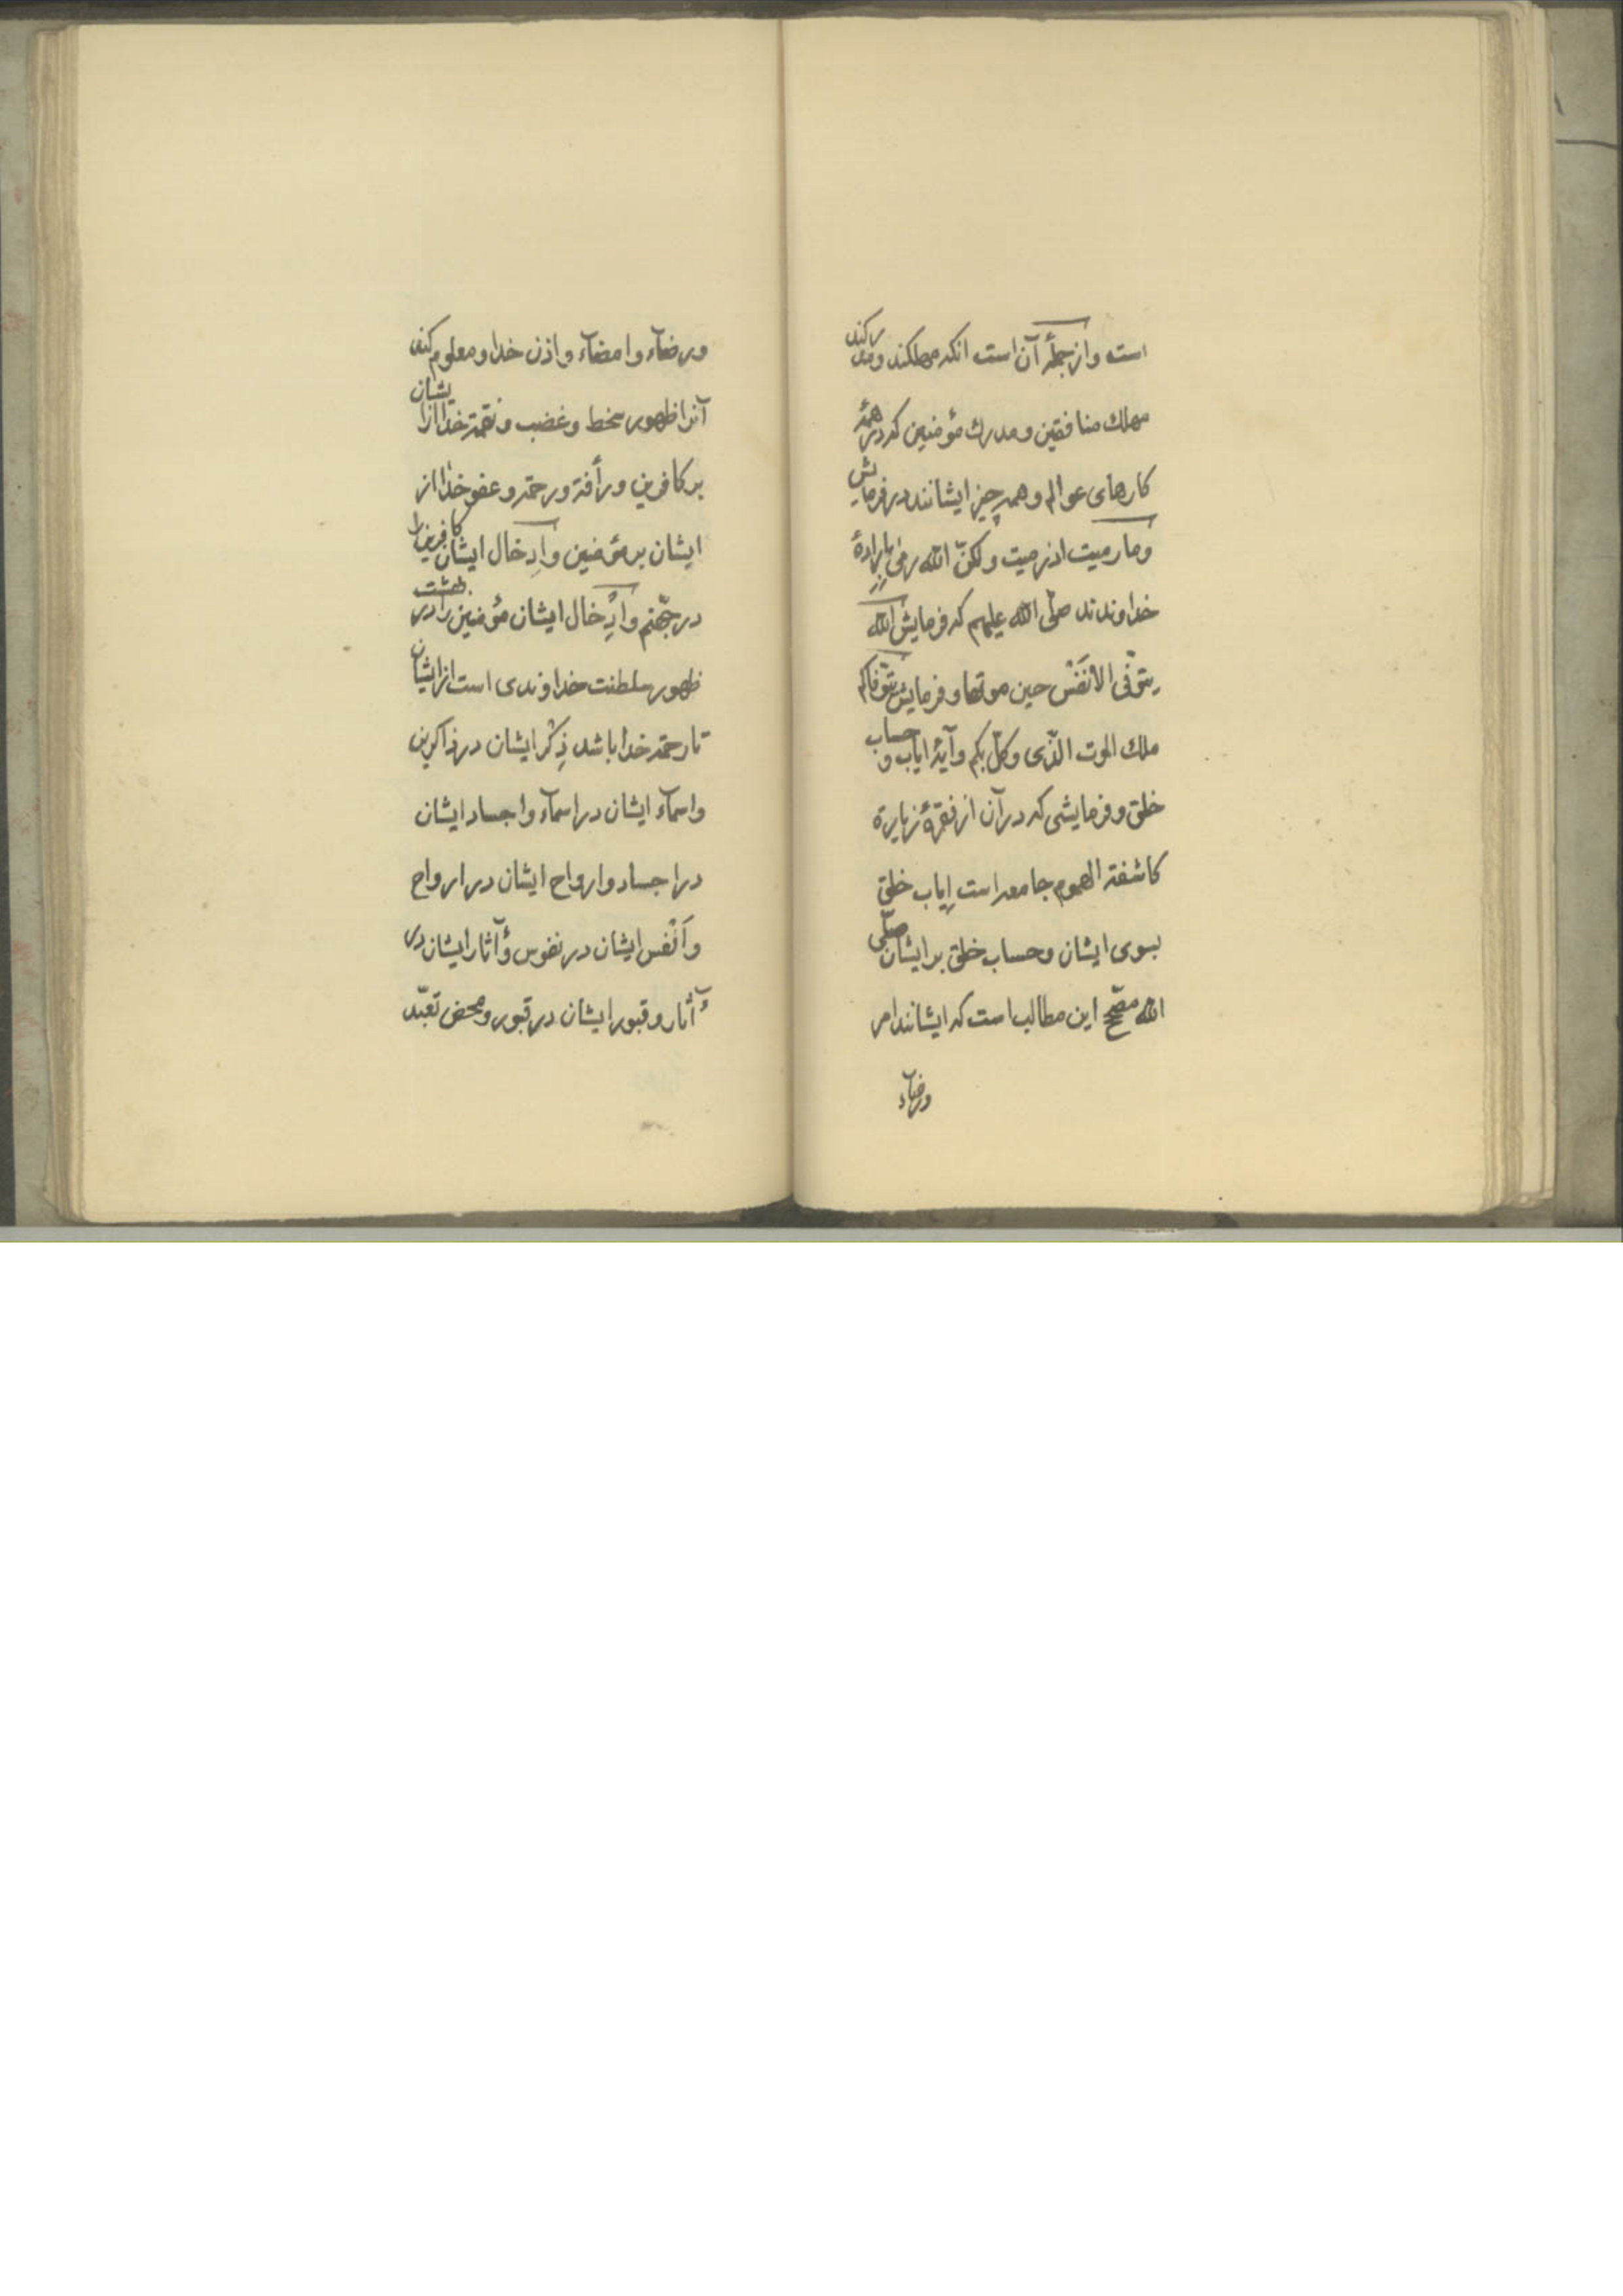 است و از جملهٔ آن است انکه مهلکند و مدرکند
مهلك منافقین و مدرك مؤمنین که در همهٔ
کارهای عوالم و همه چیز ایشانند در فرمایش
و مارمیت اذ رمیت ولکنّ الله رمی بارادهٔ
خداوندند صلّی الله علیهم که فرمایش الله
یتوفّی الأنفس حین موتها و فرمایش یتوفّاکم
ملك الموت الّذی وکّل بکم و آیهٔ ایاب و حساب
خلق و فرمایشی که در آن از فقرهٔ زیارة
کاشفة الهموم جامعه است اِیاب خلق
بسوی ایشان و حساب خلق بر ایشان صلّی
الله مصحّح این مطالب است که ایشانند امر
و رضآء
و رضآء و امضآء و اذن خدا و معلوم کند
آنرا ظهور سخط و غضب و نقمة خدا از ایشان
بر کافرین و رأفة و رحمة و عفو خدا از
ایشان بر مؤمنین و اِدخال ایشان کافرین را
در جهنّم و اِدخال ایشان مؤمنین را در بهشت
ظهور سلطنت خداوندی است از ایشان
تا رحمة خدا باشد ذِکْر ایشان در ذاکرین
و اسمآء ایشان در اسمآء و اجساد ایشان
در اجساد و ارواح ایشان در ارواح
و اَنْفس ایشان در نفوس و آثار ایشان در
آثار و قبور ایشان در قبور و محض تعبّد